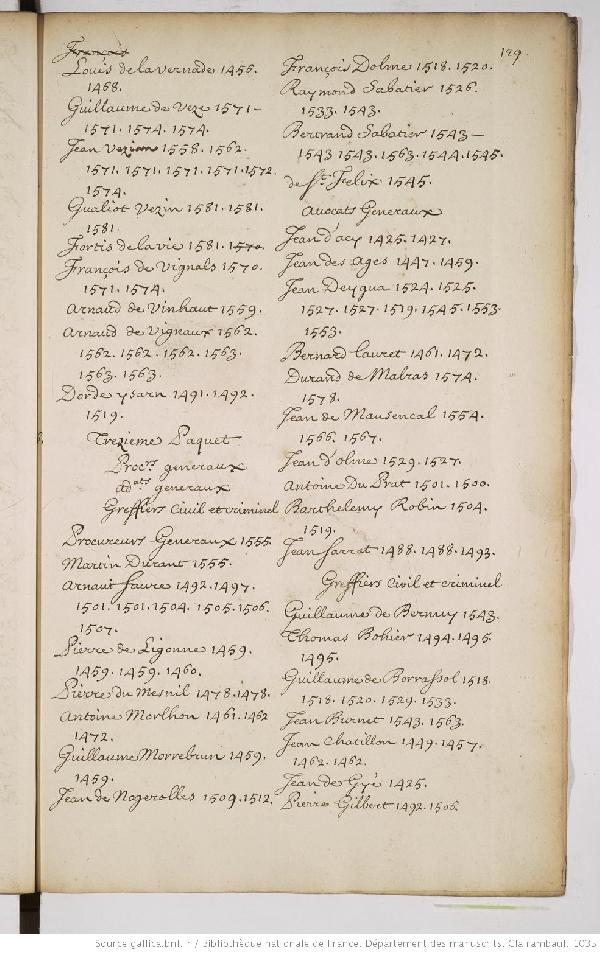 129.
François
Louis de la vernade 1456.
1468.
Guillaume de Veze 1571 –
1571. 1574. 1574.
Jean Vezian 1558. 1562.
1571. 1571. 1571. 1571. 1572.
1574.
Gualiot Vezin 1581. 1581.
1581.
Fortis de la vie 1581. 1570.
François de Vignals 1570.
1571. 1574.
Arnaud de Vinhaut 1559.
Arnaud de Vignaux 1562.
1562. 1562. 1562. 1563.
1563. 1563.
Dorde ysarn 1491. 1492.
1519.
Trezieme Paquet
Procrs generaux
adats generaux
Greffiers Civil et criminel
Procureurs Generaux 1555.
Martin Durant 1555.
Arnaut faure 1492. 1497.
1501. 1501. 1504. 1505. 1506.
1507.
Pierre de Ligonne 1459.
1459. 1459. 1460.
Pierre du Mesnil 1478. 1478.
Antoine Morlhon 1461. 1462
1472.
Guillaume Morrebrun 1459.
1459.
Jean de Nogerolles 1509. 1512.
François Dolme 1518. 1520.
Raymond Sabatier 1526.
1533. 1543.
Bertrand Sabatier 1543 –
1543 1543. 1563. 1544. 1545.
de St. Felix 1545.
Avocats Generaux
Jean d'acy 1425. 1427.
Jean des Ages 1447. 1459.
Jean Deygua 1524. 1525.
1527. 1527. 1519. 1545. 1553.
1553.
Bernard lauret 1461. 1472.
Durand de Malras 1574.
1578.
Jean de Mausencal 1554.
1566. 1567.
Jean d'olme 1529. 1527.
Antoine Du Prat 1501. 1500.
Barthelemy Robin 1504.
1519.
Jean sarrat 1488. 1488. 1493.
Greffiers Civil et criminel
Guillaume de Bernuy 1543.
Thomas Bohier 1494. 1495.
1495.
Guillaume de Borrassol 1518.
1518. 1520. 1529. 1533.
Jean Burnet 1543. 1563.
Jean Chacillon 1449. 1457.
1462. 1462.
Jean de Gyé 1425.
Pierre Gilbert 1492. 1506.
Source gallica.bnf.fr / Bibliothèque nationale de France. Département des manuscrits. Clairambault 1035